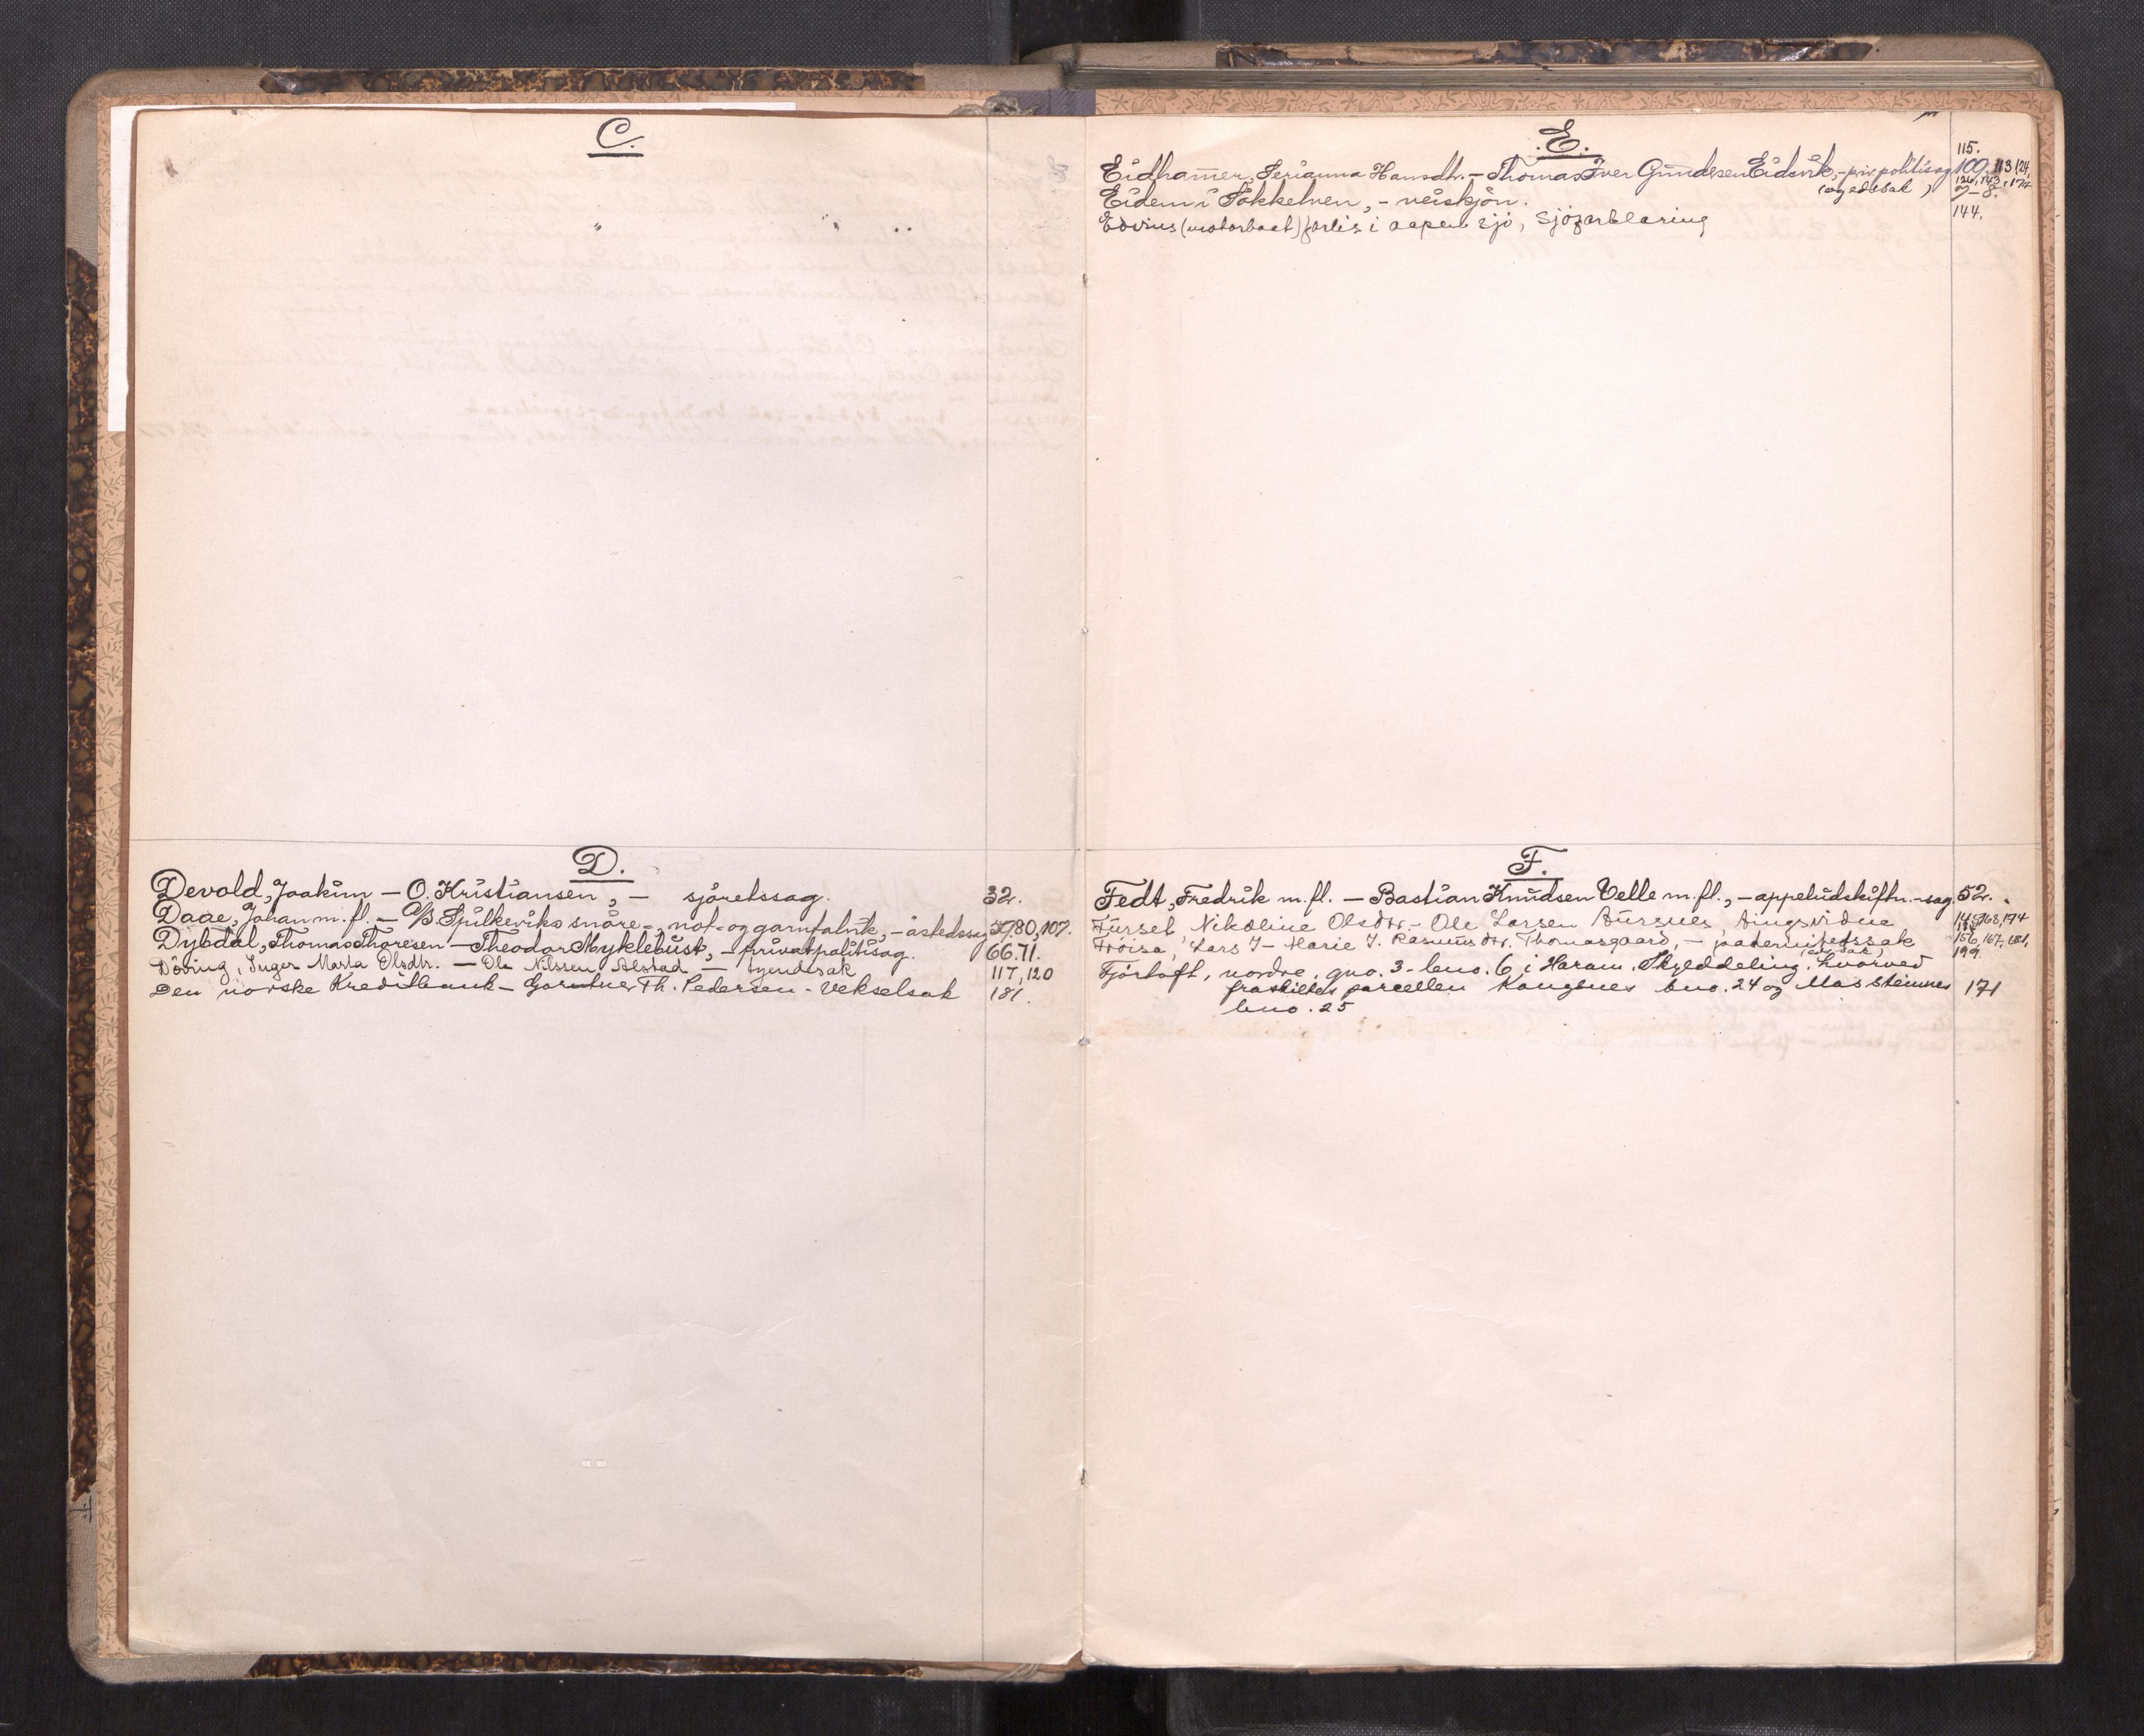 C.
D.
Devold, Joakim – O. Kristiansen, – sjöretssag. 32.
Daae, Johan m. fl. – A/B. Spilkeviks snöre-, not- og garnfabrik, – åstedssag 57,80,107.
Dybdal, Thomas Thoresen – Theodor Myklebust, – privatpolitisag. 66.71.
Döving, Inger Marta Olsdtr. – Ole Nilssen Alstad – tyendesak 117,120
Den norske Kreditbank – Gartner Th. Pedersen – Vekselsak 181.
E.
115.
Eidhamer, Serianna Hansdtr. – Thomas Iver Gundersen Eidsvik, – priv. politisag 109, 113, 124,
(og edsak) 126, 143, 174
Eidem i Tokkelven, – veiskjön. 7–8.
Edvins (motorbaat) forlis i aapen sjö, sjöforklaring 144.
F.
Fedt, Fredrik m. fl. – Bastian Knudsen Velle m. fl., – appeludskiftn.-sag 52.
Fürset, Nikoline Olsdtr. – Ole Larsen Aursnes, tingsvidne 168, 174
Fröisa, Lars J – Marie J. Rasmusdtr. Thomasgaard, – paternitetssak 156, 167, 181,
(edsak) 199
Fjörtoft, nordre, gno. 3 – bno. 6 i Haram. Skylddeling, hvorved
fraskiltes parcellen Kongsnes bno. 24 og Masteinnes 171
bno. 25